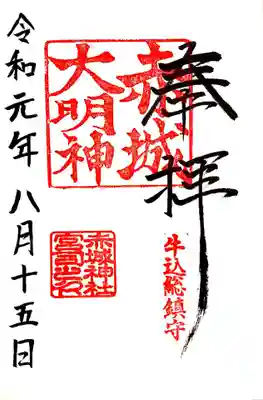 奉拝
牛込総鎮守
赤城
大明神
赤城神社
宮司之印
令和元年八月十五日